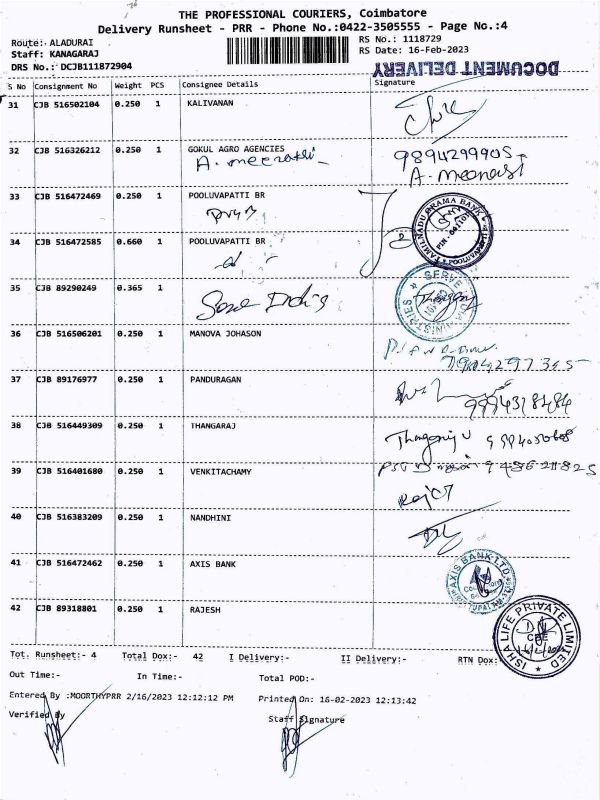 THE PROFESSIONAL COURIERS, Coimbatore
Delivery Runsheet - PRR - Phone No.:0422-3505555 - Page No.:4
Route: ALADURAI
Staff: KANAGARAJ
DRS No.: DCJB111872904
RS No.: 1118729
RS Date: 16-Feb-2023
DOCUMENT DELIVERY
S No Consignment No Weight PCS Consignee Details Signature
31 CJB 516502104 0.250 1 KALIVANAN
32 CJB 516326212 0.250 1 GOKUL AGRO AGENCIES 9894299905
A. meenakshi A. Meenakshi
33 CJB 516472469 0.250 1 POOLUVAPATTI BR
TAMIL NADU GRAMA BANK
34 CJB 516472585 0.660 1 POOLUVAPATTI BR
35 CJB 89290249 0.365 1
SERVE
MINISTRIES
36 CJB 516506201 0.250 1 MANOVA JOHASON
37 CJB 89176977 0.250 1 PANDURAGAN
38 CJB 516449309 0.250 1 THANGARAJ
Thangaraj
39 CJB 516401680 0.250 1 VENKITACHAMY
40 CJB 516383209 0.250 1 NANDHINI
41 CJB 516472462 0.250 1 AXIS BANK
AXIS BANK LTD
42 CJB 89318801 0.250 1 RAJESH
ISHA LIFE PRIVATE LIMITED
CBE
Tot. Runsheet:- 4 Total Dox:- 42 I Delivery:- II Delivery:- RTN Dox:-
Out Time:- In Time:- Total POD:-
Entered By :MOORTHYPRR 2/16/2023 12:12:12 PM Printed On: 16-02-2023 12:13:42
Verified By Staff Signature